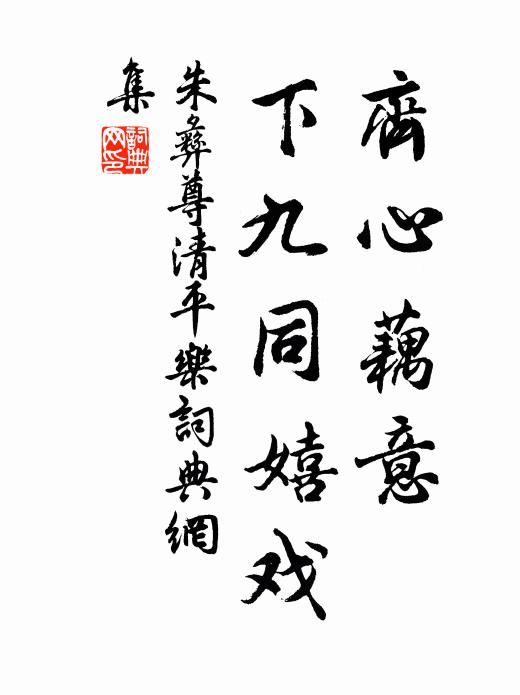 齊心藕意
下九同嬉戏
朱彝尊清平樂詞典網
集
詞典网印